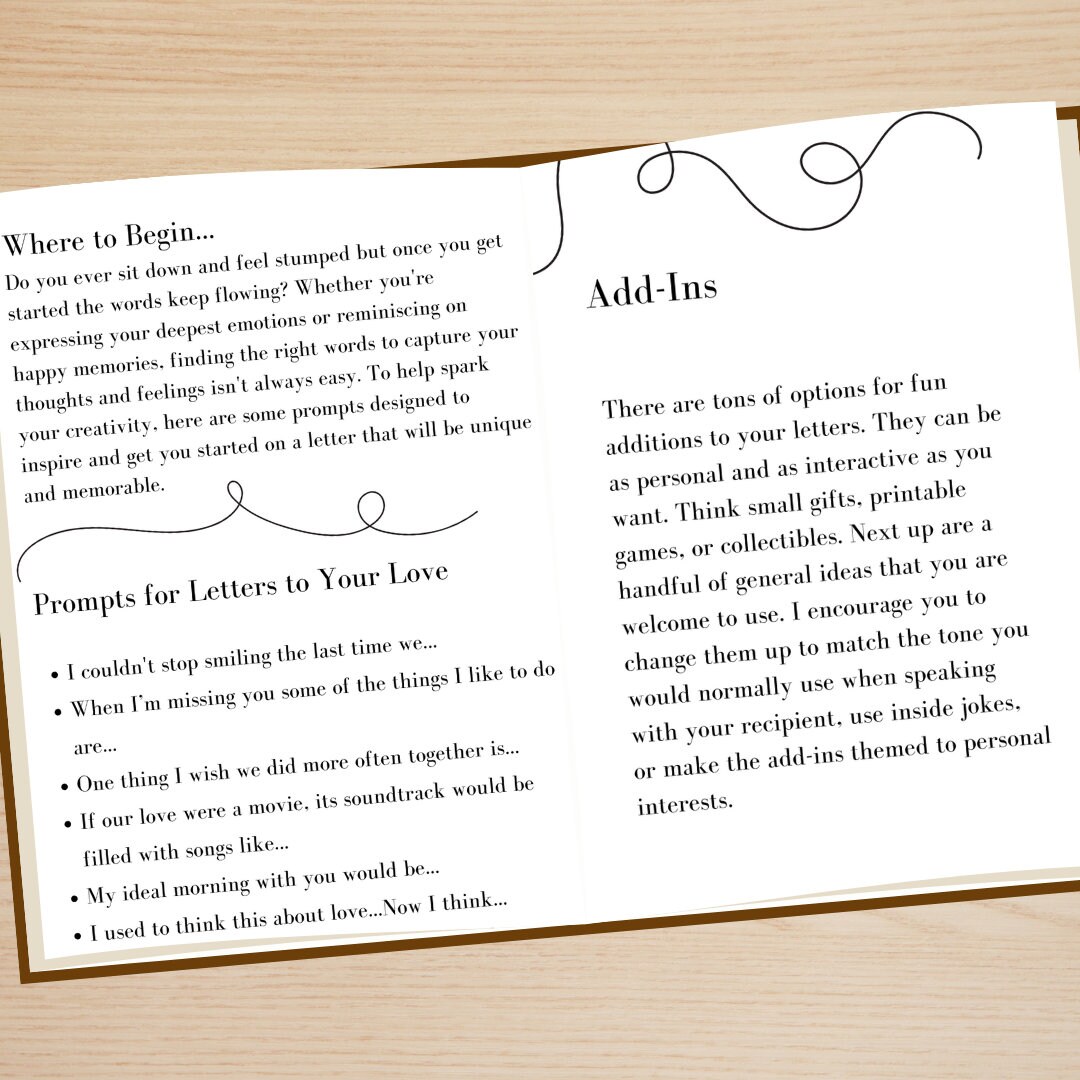 Where to Begin...
Do you ever sit down and feel stumped but once you get
started the words keep flowing? Whether you're
expressing your deepest emotions or reminiscing on
happy memories, finding the right words to capture your
thoughts and feelings isn't always easy. To help spark
your creativity, here are some prompts designed to
inspire and get you started on a letter that will be unique
and memorable.
Prompts for Letters to Your Love
• I couldn't stop smiling the last time we...
• When I'm missing you some of the things I like to do
are...
• One thing I wish we did more often together is...
• If our love were a movie, its soundtrack would be
filled with songs like...
• My ideal morning with you would be...
• I used to think this about love...Now I think...
Add-Ins
There are tons of options for fun
additions to your letters. They can be
as personal and as interactive as you
want. Think small gifts, printable
games, or collectibles. Next up are a
handful of general ideas that you are
welcome to use. I encourage you to
change them up to match the tone you
would normally use when speaking
with your recipient, use inside jokes,
or make the add-ins themed to personal
interests.